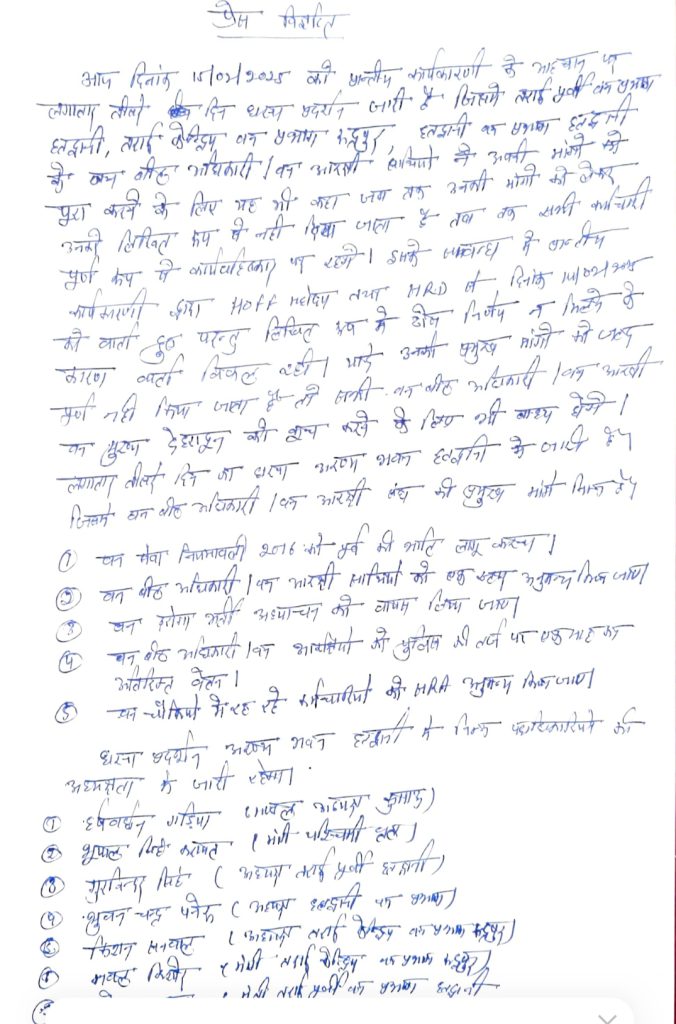 प्रेस विज्ञप्ति
आज दिनांक 15/02/2025 को प्रान्तीय कार्यकारणी के आह्वान पर
लगातार तीसरे दिन धरना प्रदर्शन जारी है जिसमे तराई पूर्वी वन प्रभाग
हल्द्वानी, तराई केन्द्रिय वन प्रभाग रूद्रपुर, हल्द्वानी वन प्रभाग हल्द्वानी
के वन बीट अधिकारी / वन आरक्षी साथियो ने अपनी मांगो को
पूरा करने के लिए यह भी कहा जब तक उनकी मांगो को लेकर
उनको लिखित रूप मे नही दिया जाता है तब तक सभी कर्मचारी
पूर्ण रूप से कार्यबहिष्कार पर रहेगे। इसके सम्बन्ध मे प्रान्तीय
कार्यकारणी द्वारा HOFF महोदय तथा HRD से दिनांक 14/02/2025
को वार्ता हुई परन्तु लिखित रूप मे ठोस निर्णय न मिलने के
कारण वार्ता विफल रही। यदि उनकी प्रमुख मांगो को जल्द
पूर्ण नही किया जाता है तो सभी वन बीट अधिकारी / वन आरक्षी
वन मुख्यालय देहरादून को कूच करने के लिए भी बाध्य होगे।
लगातार तीसरे दिन का धरना अरण्य भवन हल्द्वानी मे जारी है।
जिसमे वन बीट अधिकारी / वन आरक्षी संघ की प्रमुख मांगे निम्न है।
① वन सेवा नियमावली 2016 को पूर्व की भाति लागू करना।
② वन बीट अधिकारी / वन आरक्षी साथियो को एक स्टार अनुमन्य किया जाए।
③ वन दरोगा भर्ती अध्याचन को वापस लिया जाए।
④ वन बीट अधिकारी / वन आरक्षियो को पुलिस की तर्ज पर एक माह का
अतिरिक्त वेतन।
⑤ वन चौकियो मे रह रहे कर्मचारियो को HRA अनुमन्य किया जाए।
धरना प्रदर्शन अरण्य भवन हल्द्वानी मे निम्न पदाधिकारियो की
अध्यक्षता मे जारी रहेगा।
① हर्षवर्धन गड़िया (मण्डल अध्यक्ष कुमाऊ)
② भूपाल सिंह (मंत्री पश्चिमी वृत्त)
③ गुरविन्दर सिंह (अध्यक्ष तराई पूर्वी हल्द्वानी)
④ भुवन चन्द्र पनेरू (अध्यक्ष हल्द्वानी वन प्रभाग)
⑤ किशन सनवाल (अध्यक्ष तराई केन्द्रिय वन प्रभाग रूद्रपुर)
⑥ नवल किशोर (मंत्री तराई केन्द्रिय वन प्रभाग रूद्रपुर)
मंत्री तराई पूर्वी वन प्रभाग हल्द्वानी